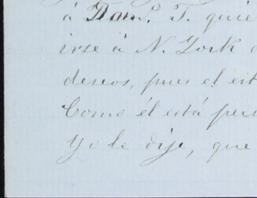 á Dam.º T. quie
irse á N. York
deseos, pues el est
Como él está per
Yo le dije, que